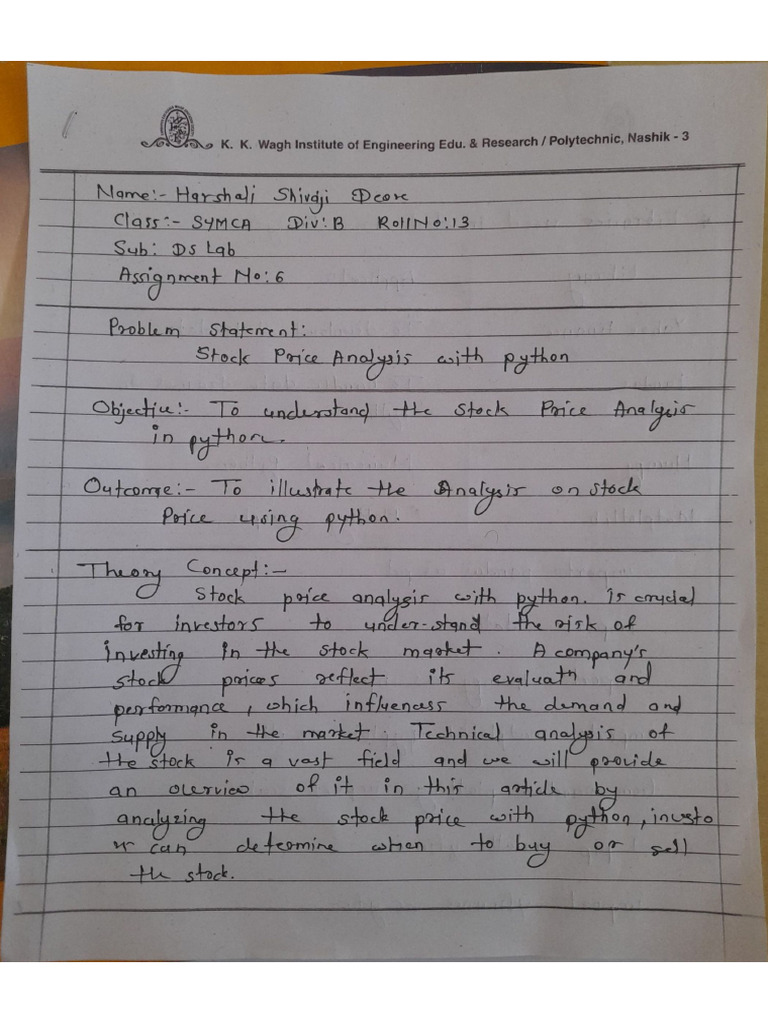 K. K. Wagh Institute of Engineering Edu. & Research / Polytechnic, Nashik - 3
Name:- Harshali Shivaji Deore
Class:- SYMCA Div: B Roll No: 13
Sub: DS Lab
Assignment No: 6
Problem Statement:
Stock Price Analysis with python
Objective:- To understand the stock Price Analysis
in python.
Outcome:- To illustrate the Analysis on stock
Price using python.
Theory Concept:-
Stock price analysis with python. is crucial
for investors to under-stand the risk of
investing in the stock market. A company's
stock prices reflect its evaluatn and
performance, which influences the demand and
supply in the market. Technical analysis of
the stock is a vast field and we will provide
an overview of it in this article by
analyzing the stock price with python, investo
r can determine when to buy or sell
the stock.